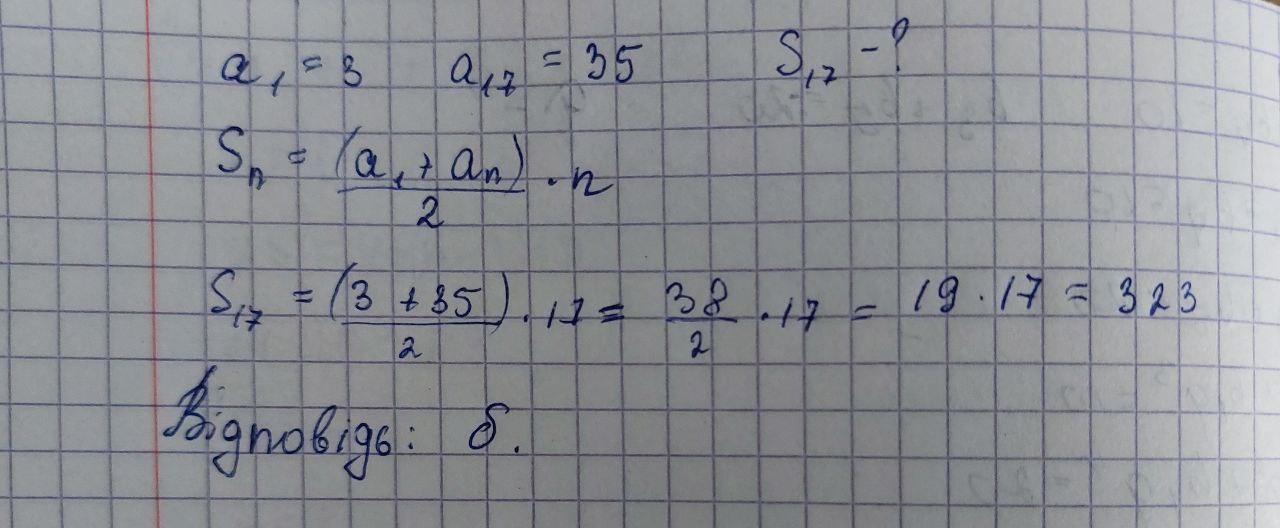 a₁ = 3 a₁₇ = 35 S₁₇ - ?
Sₙ = (a₁ + aₙ)/2 · n
S₁₇ = (3 + 35)/2 · 17 = 38/2 · 17 = 19 · 17 = 323
Відповідь: б.